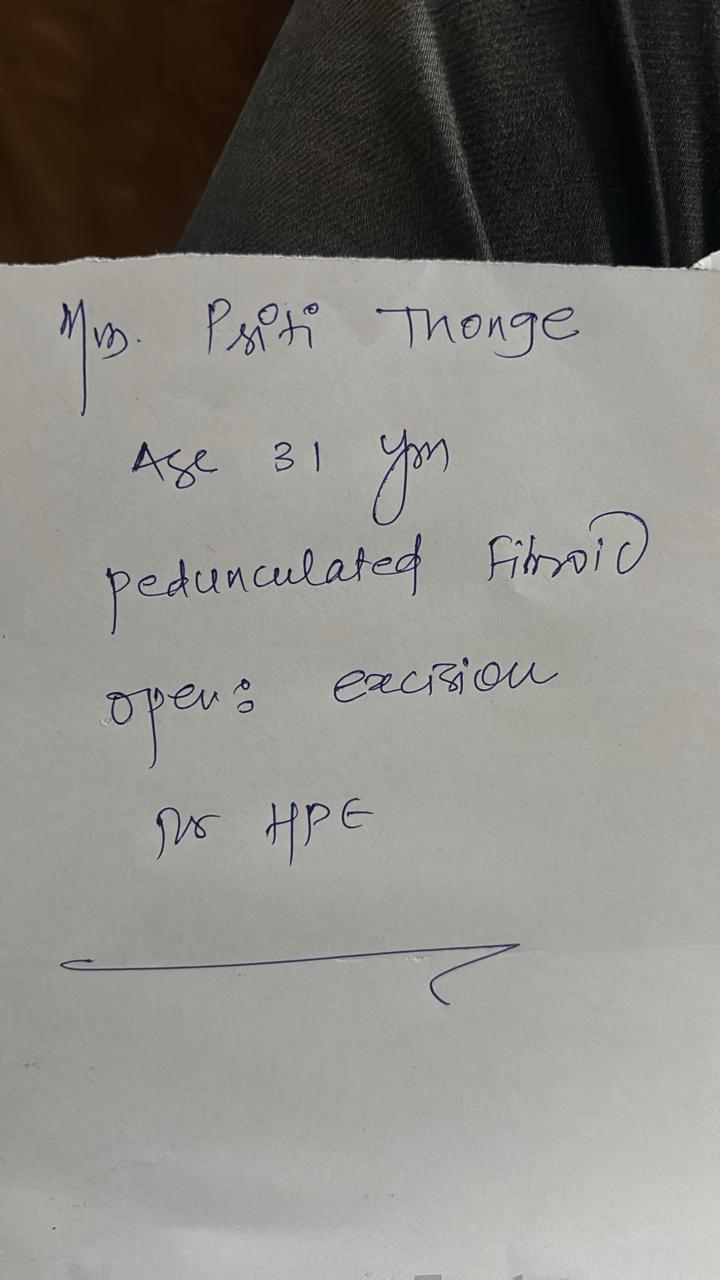 Mrs. Priti Thonge
Age 31 yrs
pedunculated Fibroid
open: excision
for HPE